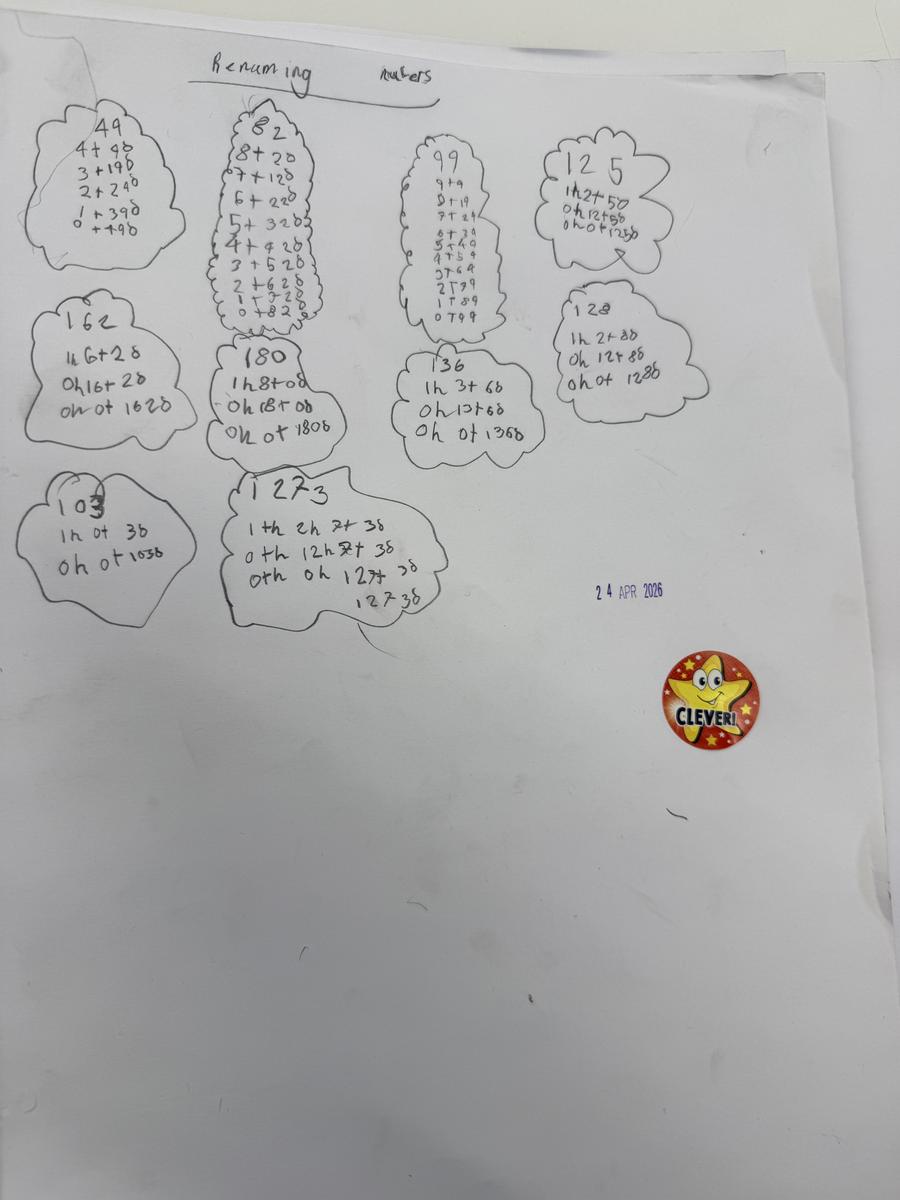 Renaming nubers
49
4t 9o
3t 19o
2t 29o
1t 39o
0t 49o
82
8t 2o
7t 12o
6t 22o
5t 32o
4t 42o
3t 52o
2t 62o
1t 72o
0t 82o
99
9t9
8t19
7t29
6t39
5t49
4t59
3t69
2t79
1t89
0t99
125
1h2t5o
0h12t5o
0h0t125o
162
1h 6t2o
0h16t 2o
0h 0t 162o
180
1h8t0o
0h18t 0o
0h 0t 180o
136
1h 3t 6o
0h13t6o
0h 0t 136o
128
1h 2t 8o
0h 12t 8o
0h 0t 128o
103
1h 0t 3o
0h 0t 103o
1273
1th 2h 7t 3o
0th 12h 7t 3o
0th 0h 127t 3o
1273o
24 APR 2026
CLEVER!